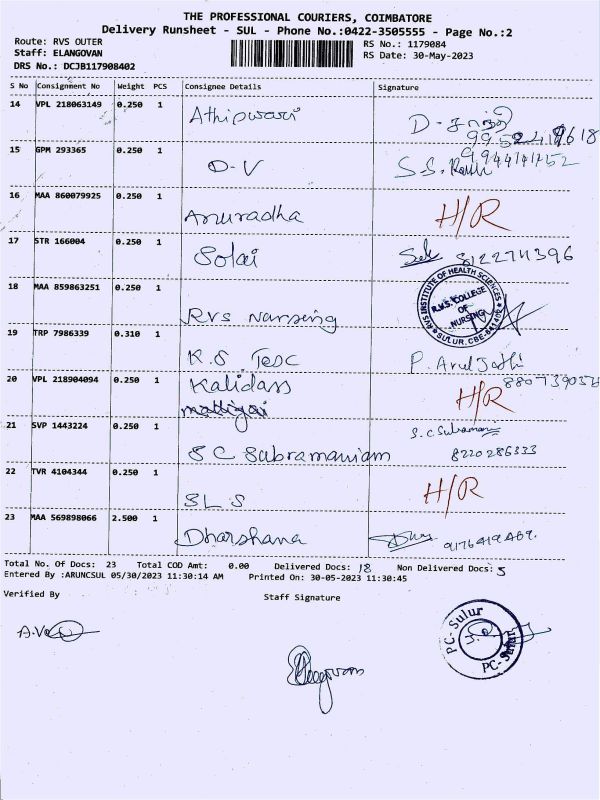 THE PROFESSIONAL COURIERS, COIMBATORE
Delivery Runsheet - SUL - Phone No.:0422-3505555 - Page No.:2
Route: RVS OUTER
RS No.: 1179084
Staff: ELANGOVAN
RS Date: 30-May-2023
DRS No.: DCJB117908402
S No Consignment No Weight PCS Consignee Details Signature
14 VPL 218063149 0.250 1 Athipwari D-சாந்தி
15 GPM 293365 0.250 1 D-V S.S.
9944141152
16 MAA 860079925 0.250 1 Anuradha H/R
17 STR 166004 0.250 1 Solai 8122711396
18 MAA 859863251 0.250 1 Rvs Nursing
RVS INSTITUTE OF HEALTH SCIENCES
R.V.S. COLLEGE
OF
NURSING
SULUR, CBE-641402
19 TRP 7986339 0.310 1 K.S. Tesc P. Arul Jothi
20 VPL 218904094 0.250 1 Kalidass H/R
21 SVP 1443224 0.250 1 S C Subramaniam S.C Subramani
8220286333
22 TVR 4104344 0.250 1 SL S H/R
23 MAA 569898066 2.500 1 Dharshana
Total No. Of Docs: 23 Total COD Amt: 0.00 Delivered Docs: 18 Non Delivered Docs: 5
Entered By :ARUNCSUL 05/30/2023 11:30:14 AM Printed On: 30-05-2023 11:30:45
Verified By Staff Signature
Elangovan
PC-Sulur
PC-Sulur